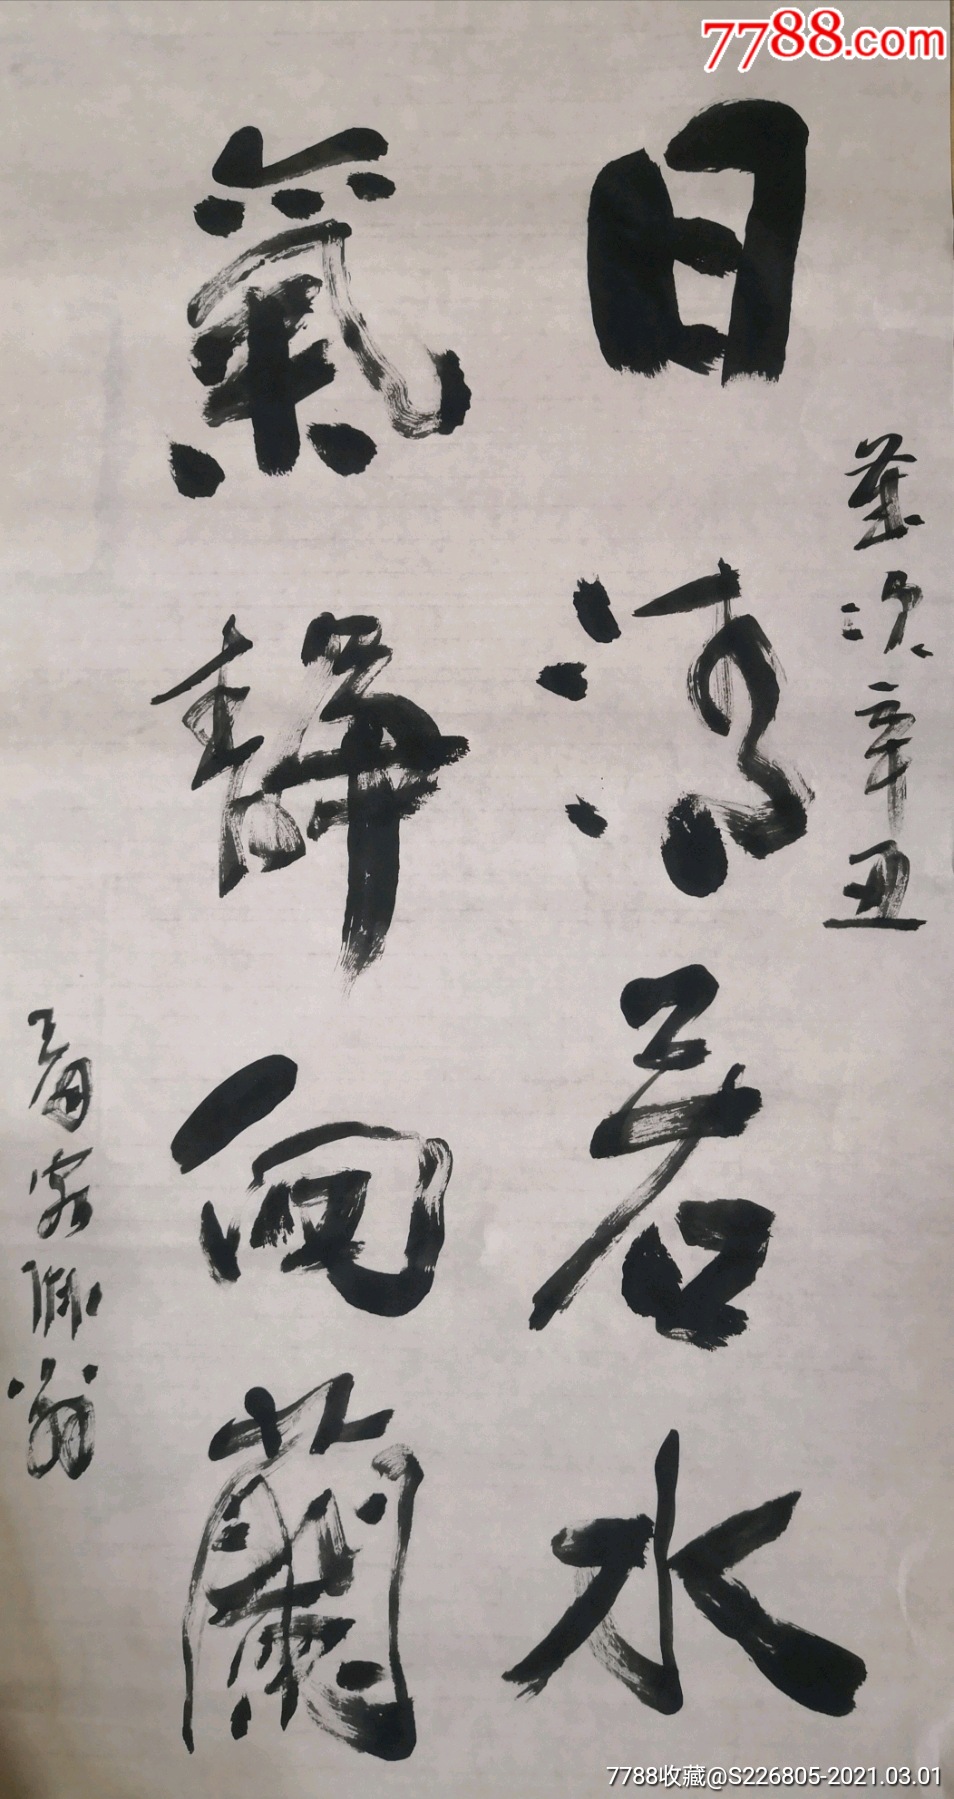 7788.com
歲次辛丑
日清若水
氣靜向蘭
客 翁
7788收藏@S226805-2021.03.01